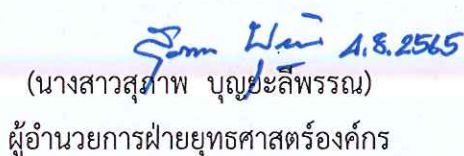 4.8.2565
(นางสาวสุภาพ บุญยะลีพรรณ)
ผู้อำนวยการฝ่ายยุทธศาสตร์องค์กร